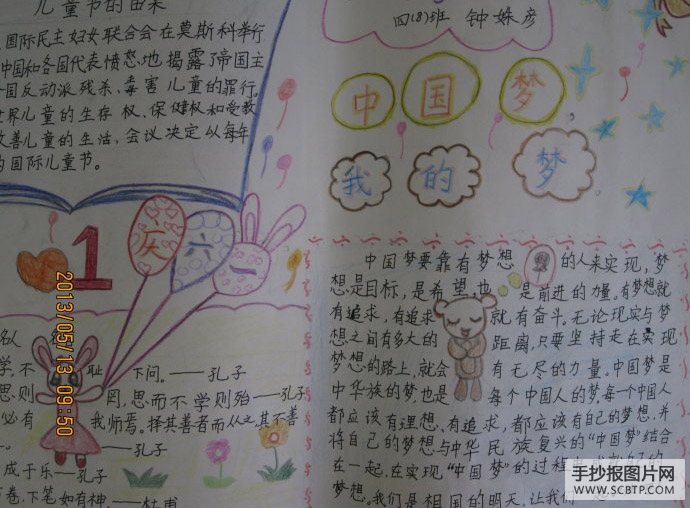 儿童节的由来
国际民主妇女联合会在莫斯科举行
中国和各国代表愤怒地揭露了帝国主
国反动派残杀、毒害儿童的罪行。
世界儿童的生存权、保健权和受教
改善儿童的生活,会议决定以每年
的国际儿童节。
四(8)班 钟姝彦
中国梦,
我的梦
1
庆六一
名人
学,不耻下问。——孔子
思则罔,思而不学则殆——孔子
必有我师焉。择其善者而从之其不善
——孔子
成于乐——孔子
卷,下笔如有神。——杜甫
中国梦要靠有梦想的人来实现,梦
想是目标,是希望,也是前进的力量。有梦想就
有追求,有追求就有奋斗。无论现实与梦
想之间有多大的距离,只要坚持走在实现
梦想的路上,就会有无尽的力量。中国梦是
中华族的梦,也是每个中国人的梦,每一个中国人
都应该有理想、有追求,都应该有自己的梦想,并
将自己的梦想与中华民族复兴的“中国梦”结合
在一起,在实现“中国梦”的过程
梦想。我们是祖国的明天,让我们
2013/05/13 09:50
手抄报图片网
WWW.SCBTP.COM